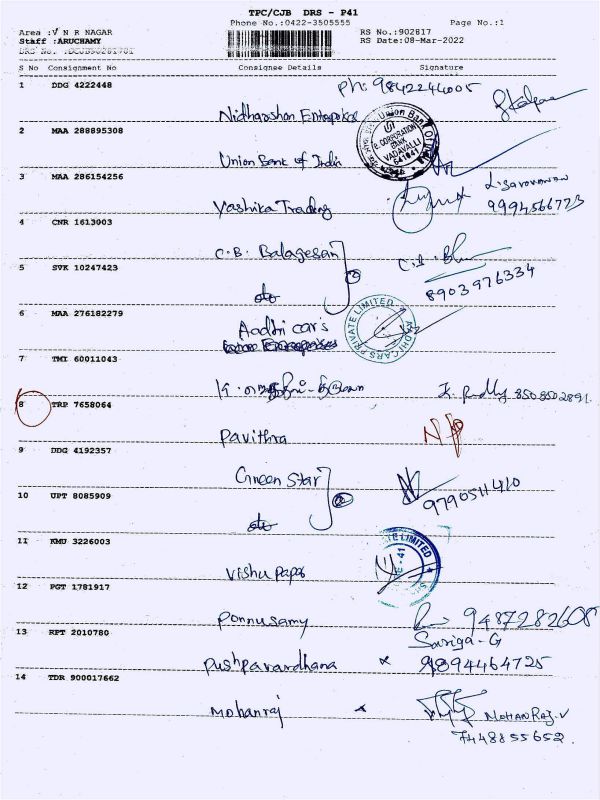 TPC/CJB DRS - P41
Phone No.:0422-3505555 Page No.:1
Area :V N R NAGAR RS No.:902817
Staff :ARUCHAMY RS Date:08-Mar-2022
DRS No. :DCJB90281701
S No Consignment No Consignee Details Signature
1 DDG 4222448 Ph: 9842244005
Nidharshan Enterprises
2 MAA 288895308
Union Bank of India
3 MAA 286154256
Yashika Trading L. Saravanan 9994566773
4 CNR 1613003
C.B. Balagesan
5 SVK 10247423 2 8903976334
do
6 MAA 276182279
Aadhi cars AADHI CARS PRIVATE LIMITED
7 TMI 60011043
K. 8508502891
8 TRP 7658064
Pavithra
9 DDG 4192357
Green Star
10 UPT 8085909 2 9790511410
do
11 KMU 3226003
Vishu Papa
12 PGT 1781917
Ponnusamy 9487282608
13 RPT 2010780 Sariga-G
Pushpavardhana x 9894464725
14 TDR 900017662
Mohanraj x MOHAN RAJ.V
7448855652.